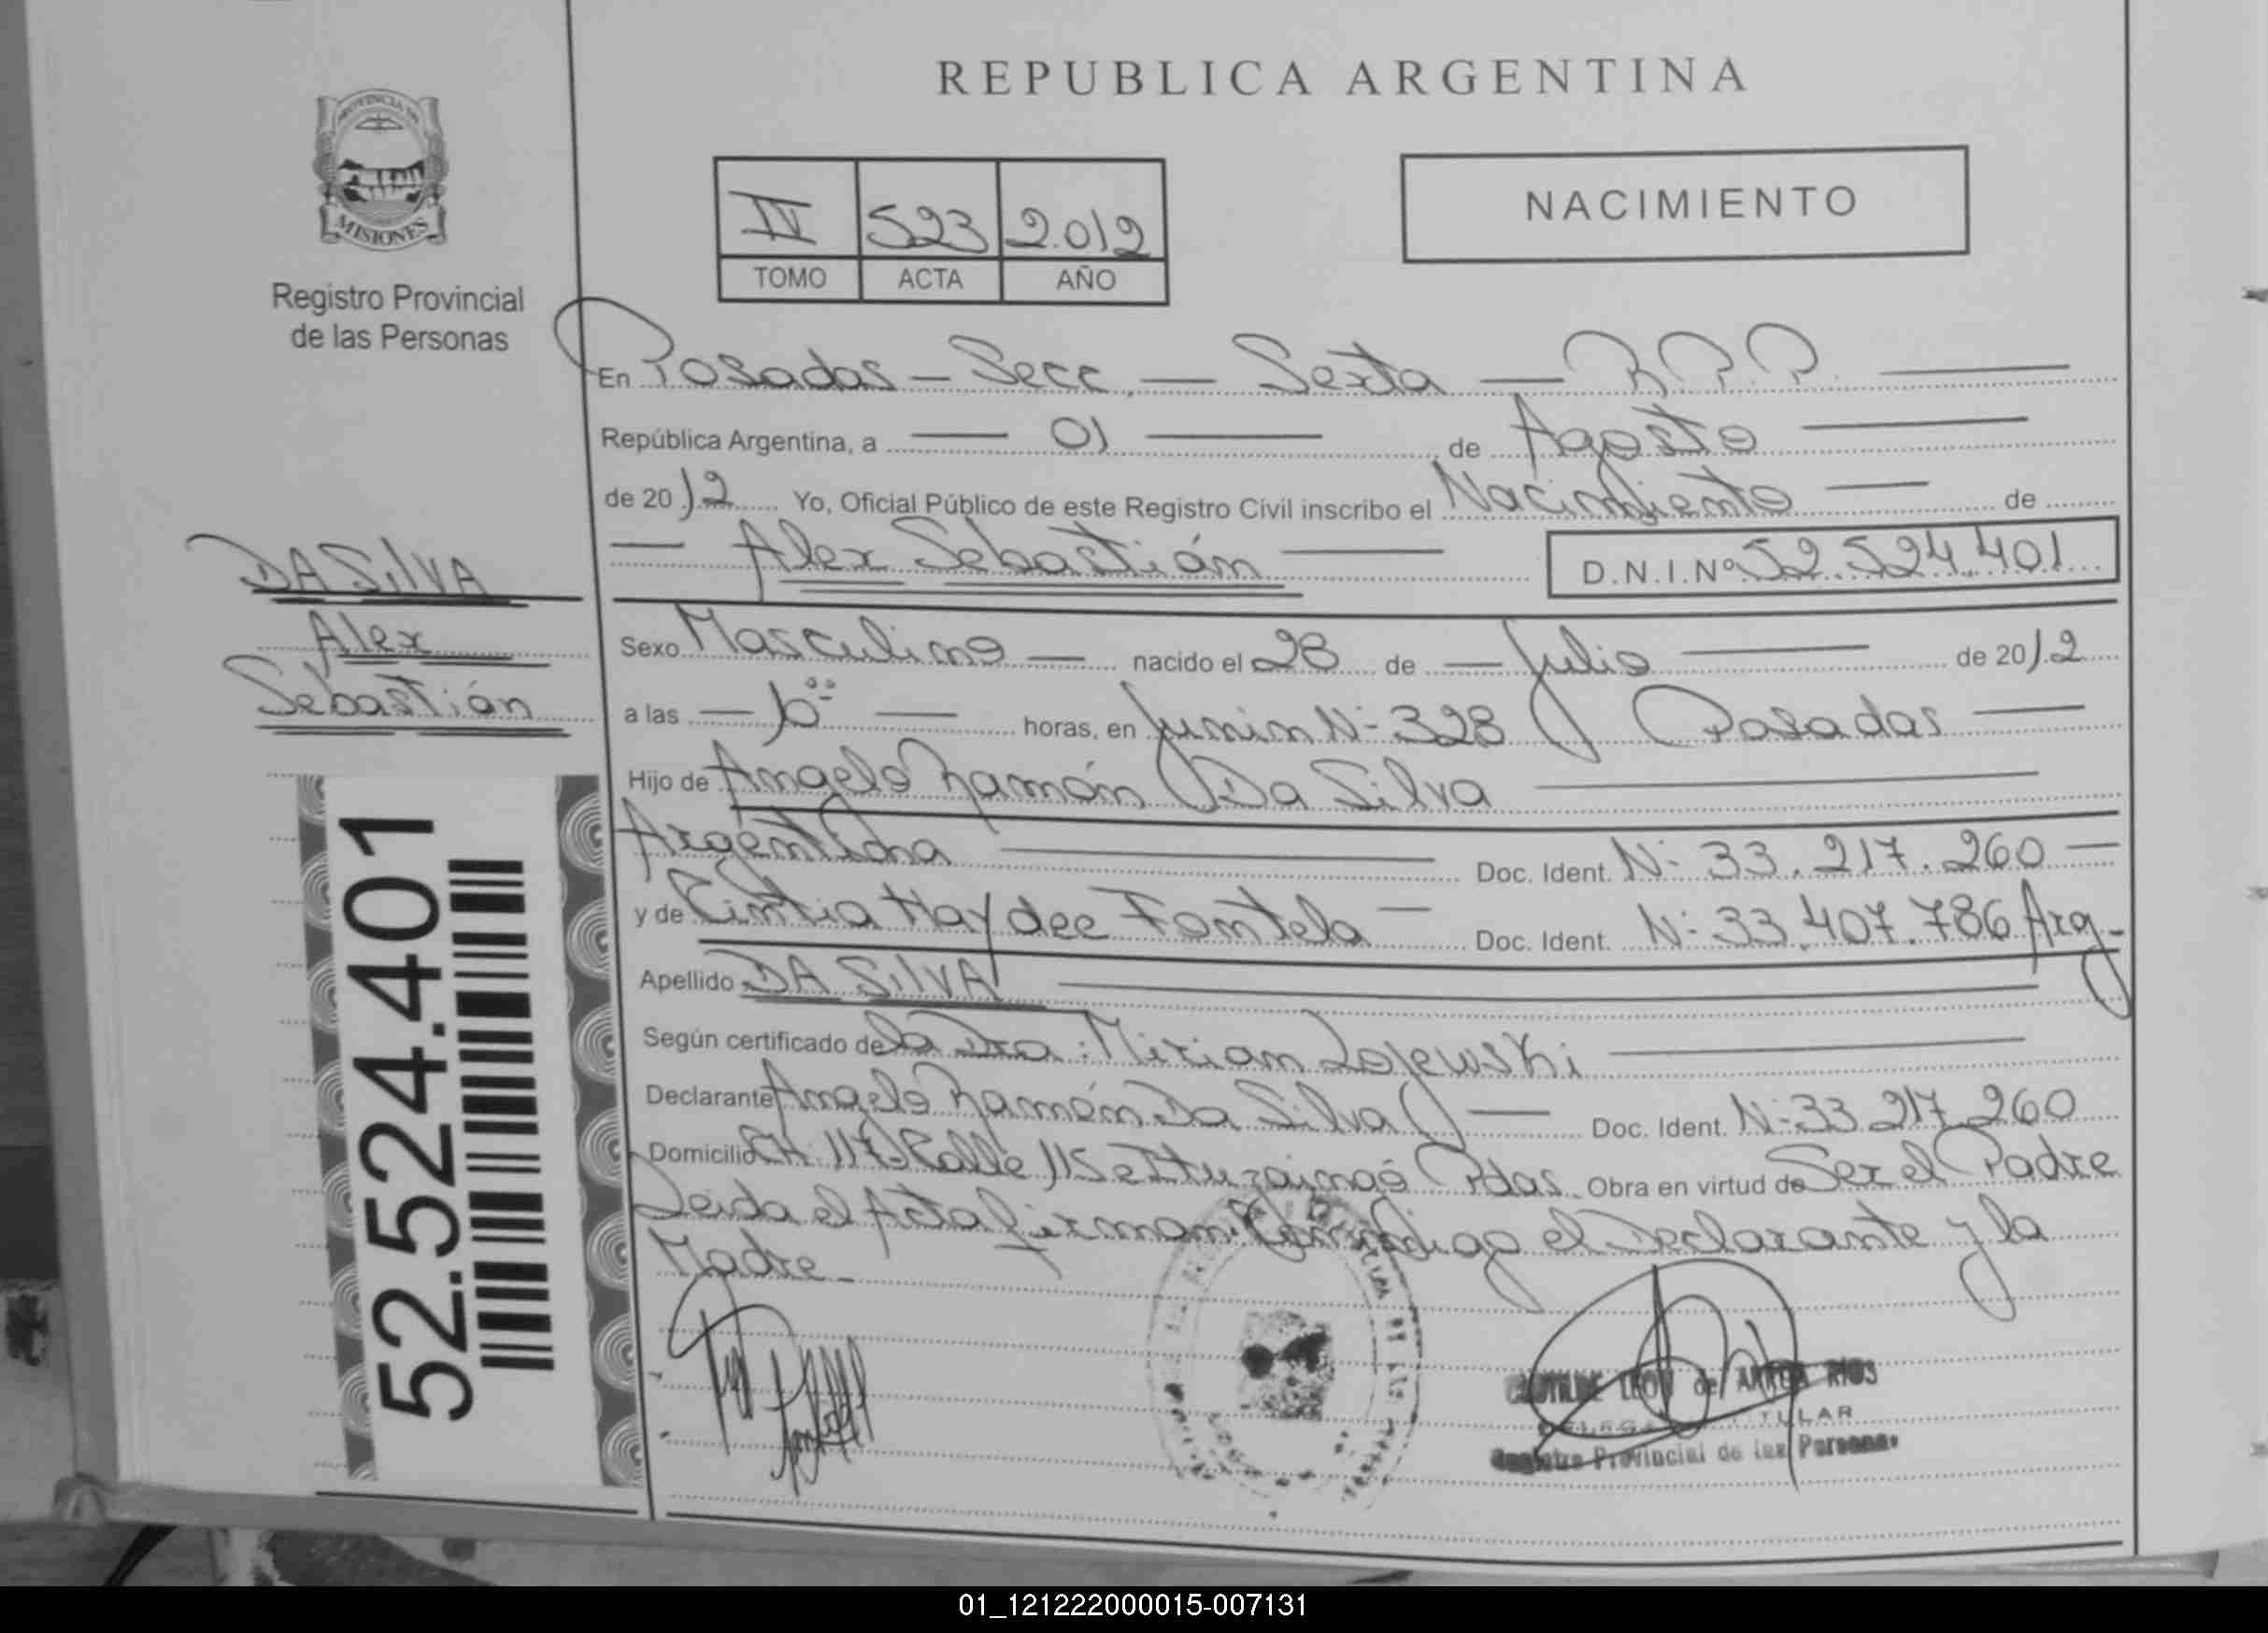 REPUBLICA ARGENTINA
PROVINCIA DE
MISIONES
Registro Provincial
de las Personas
IV 523 2.012
TOMO ACTA AÑO
NACIMIENTO
En Posadas - Secc. - Sexta - R.P.P.
República Argentina, a 01 de Agosto
de 2012 Yo, Oficial Público de este Registro Civil inscribo el Nacimiento de
Alex Sebastián D.N.I.Nº 52.524.401
DA SILVA
Alex
Sebastián
Sexo Masculino nacido el 28 de Julio de 2012
a las horas, en Junin Nº 328 Posadas
Hijo de Angelo Ramón Da Silva
Argentina Doc. Ident. Nº 33.217.260
y de Cintia Haydee Fontela Doc. Ident. Nº 33.407.786 Arg.
Apellido DA SILVA
Según certificado de la Dra: Mirian Lojewski
Declarante Angelo Ramón Da Silva Doc. Ident. Nº 33.217.260
Domicilio CH. 117 Calle 115 e Ituzaingó Pdas. Obra en virtud de Ser el Padre
Leida el Acta firman Conmigo el Declarante y la
Madre
52.524.401
CLOTILDE LEON de ARREA RIOS
DELEGADA TITULAR
Registro Provincial de las Personas
01_121222000015-007131